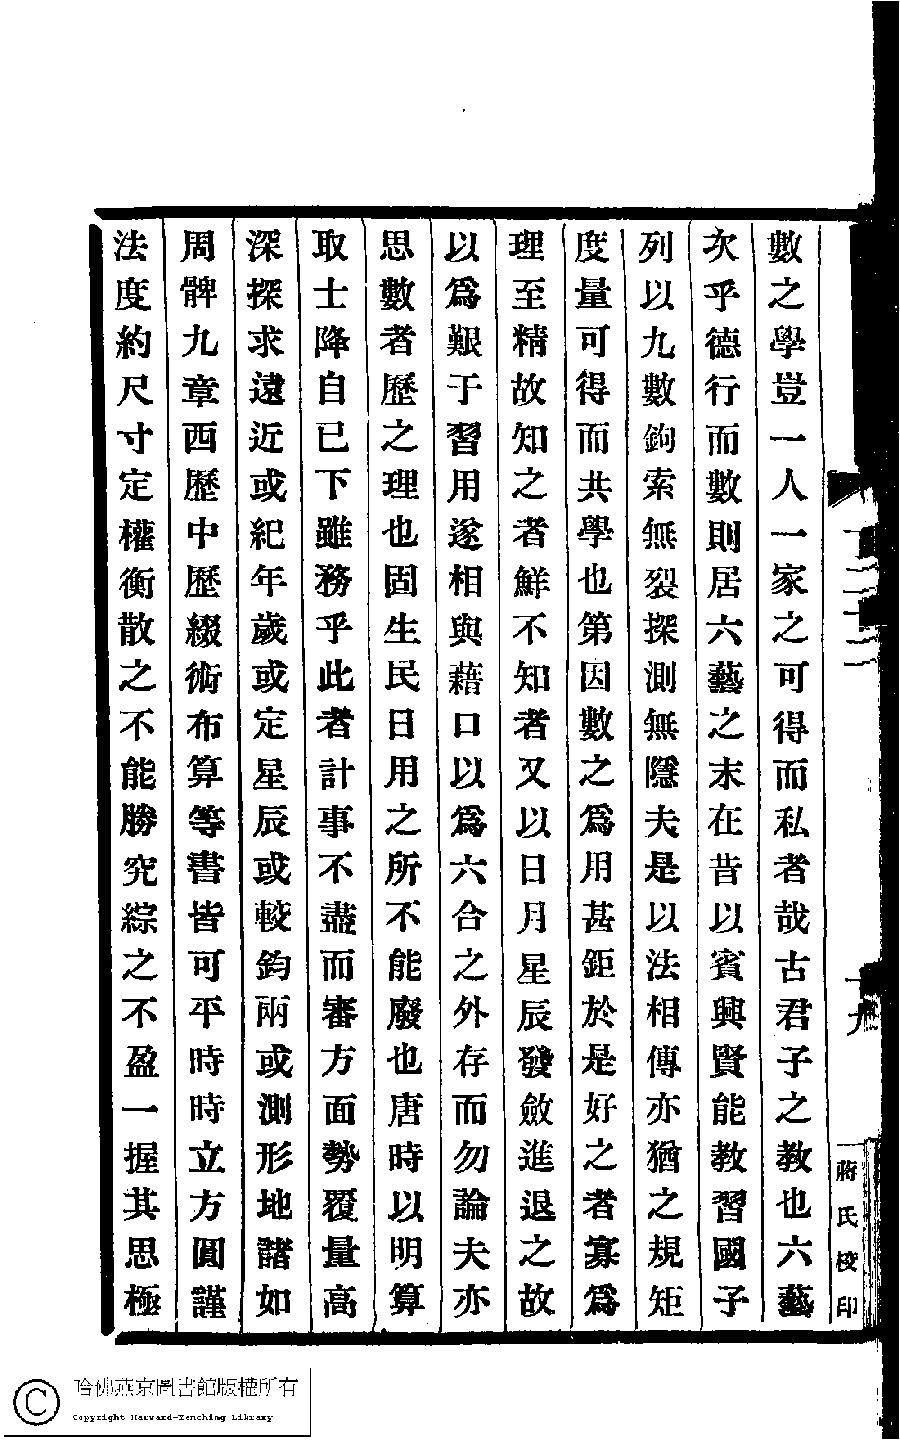 數之學豈一人一家之可得而私者哉古君子之教也六藝
次乎德行而數則居六藝之末在昔以賓興賢能教習國子
列以九數鉤索無裂探測無隱夫是以法相傳亦猶之規矩
度量可得而共學也第因數之爲用甚鉅於是好之者寡爲
理至精故知之者鮮不知者又以日月星辰發斂進退之故
以爲艱于習用遂相與藉口以爲六合之外存而勿論夫亦
思數者歷之理也固生民日用之所不能廢也唐時以明算
取士降自已下雖務乎此者計事不盡而審方面勢覆量高
深探求遠近或紀年歲或定星辰或較鈞兩或測形地諸如
周髀九章西歷中歷綴術布算等書皆可平時時立方圓謹
法度約尺寸定權衡散之不能勝究綜之不盈一握其思極
蔣氏校印
哈佛燕京圖書館版權所有
Copyright Harvard-Yenching Library